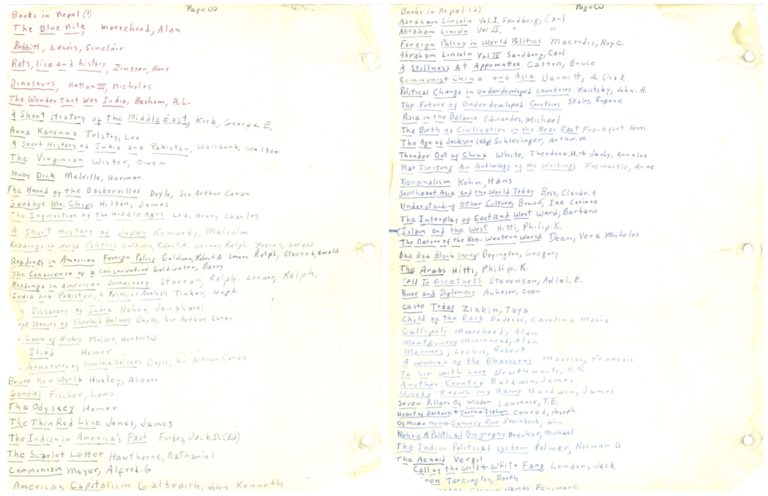 Books in Nepal (1)
Page
The Blue Nile, Moorehead, Alan
Babbitt, Lewis, Sinclair
Rats, lice and history, Zinsser, Hans
Dinosaurs, Hotton III, Nicholas
The Wonder That Was India, Basham, A.L.
A Short History of the Middle East, Kirk, George E.
Anna Karenna Tolstoy, Leo
A Short History of India and Pakistan, Wallbank, Walter
The Virginian Wister, Owen
Moby Dick Melville, Herman
The Hound of the Baskervilles Doyle, Sir Arthur Conan
Goodbye Mr. Chips Hilton, James
The Inquisition of the Middle Ages Lea, Henry Charles
A Short History of Japan Kennedy, Malcolm
Readings in World Politics Goldwin, Robert A.
Readings in American Foreign Policy Goldwin, Robert A. Lerner Ralph, Stourzh, Gerald
The Conscience of a Conservative Goldwater, Barry
Readings in American Democracy Stourzh, Ralph. Lerner, Ralph.
India and Pakistan, a Political Analysis Tinker, Hugh
Discovery of India Nehru, Jawaharal
Stories of Sherlock Holmes Doyle, Sir Arthur Conan
of History Muller, Herbert
Iliad Homer
Adventures of Sherlock Holmes Doyle, Sir Arthur Conan
Brave New World Huxley, Aldous
Gandhi Fischer, Louis
The Odyssey Homer
The Thin Red Line Jones, James
The Indian in America's Past Forbes, Jack D. (Ed)
The Scarlet Letter Hawthorne, Nathaniel
Communism Meyer, Alfred G
American Capitalism Galbraith, John Kenneth
Books in Nepal (2)
Page
Abraham Lincoln Vol I. Sandberg, Carl
Abraham Lincoln Vol II. " "
Foreign Policy in World Politics Macridis, Roy C.
Abraham Lincoln Vol III Sandberg, Carl
A Stillness at Appomattox Catton, Bruce
Communist China and Asia Barnett, A. Doak
Political Change in Underdeveloped countries Kautsky, John. A.
The Future of Underdeveloped Countries Staley, Eugene
Asia in the Balance Edwardes, Michael
The Birth of Civilization in the Near East Frankfort Henri
The Age of Jackson Schlesinger, Arthur. M
Thunder Out of China White, Theodore, H. & Jacoby, Annalee
Mao Tse-tung An Anthology of His Writings Fremantle, Anne
Nationalism Kohn, Hans
Southeast Asia and the World Today Buss, Claude. A
Understanding Other Cultures Brown, Ina Corinne
The Interplay of East and West Ward, Barbara
Islam and the West Hitti, Philip. K.
The Nature of the Non-Western World Dean, Vera Micheles
Baa Baa Black Sheep Boyington, Gregory
The Arabs Hitti, Philip. K.
Call to Greatness Stevenson, Adlai, E.
Power and Diplomacy Acheson, Dean
Caste Today Zinkin, Taya
Child of the Dark DeJesus, Carolina Maria
Gallipoli Moorehead, Alan
Montgomery Moorehead, Alan
Marines, Leckie, Robert
A Woman of the Pharisees Mauriac, Francois
To Sir With Love Braithwaite, E.R.
Another Country Baldwin, James
Nobody Knows my Name Baldwin, James
Seven Pillars of Wisdom Lawrence, T.E.
Heart of Darkness + Youth & Typhoon Conrad, Joseph
Of Mice and Men + Cannery Row Steinbeck, John
Nehru A Political Biography Brecher, Michael
The Indian Political System Palmer, Norman D
The Aeneid Vergil
Call of the Wild & White Fang London, Jack
Tarkington, Booth
Cooper James Fenimore